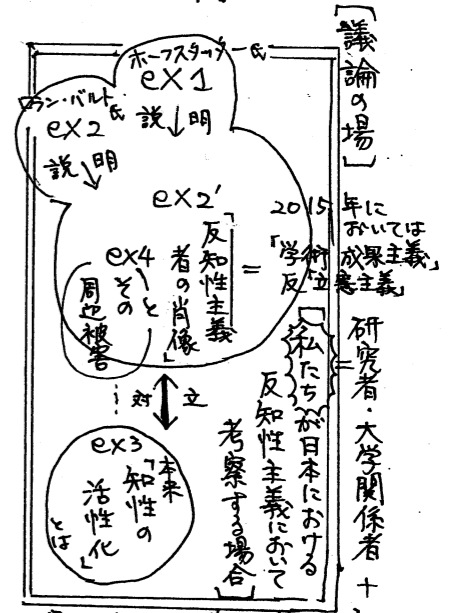 [議論の場]
ホーフスタッター氏
ex1
説↓明
ロラン・バルト氏
ex2
説明
↓
ex2'
「反知性主義
者の肖像」
ex4
と
その
周辺被害
=
2015年に
おいては
「学術成果主義」
反立憲主義」
↕
対立
ex3
「本来
知性の
活性化」
とは
[私たちが日本における
反知性主義において
考察する場合]
=研究者・大学関係者+